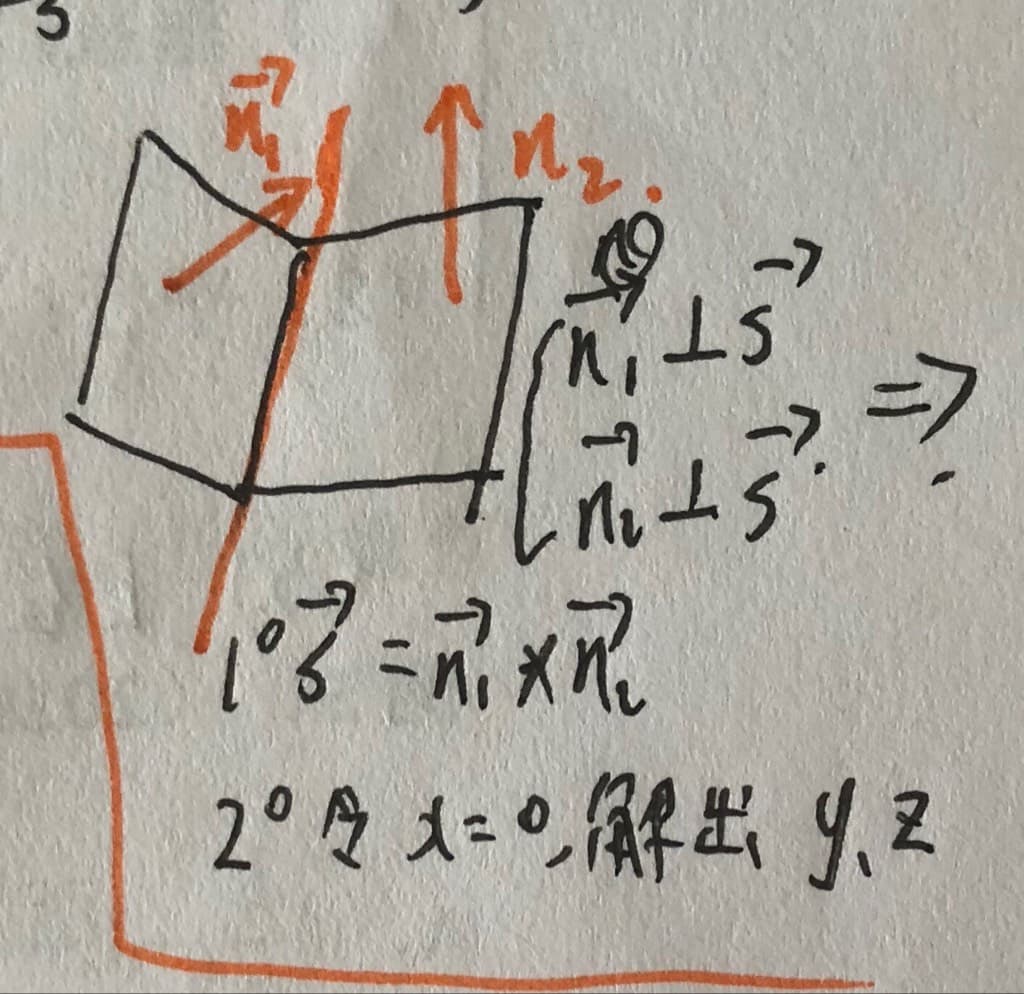 n₁→
n₂.
{ n₁→ ⊥ s→
n₂→ ⊥ s→. =>
1° s→ = n₁→ × n₂→
2° 令 x=0, 解出 y、z